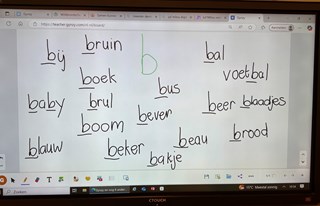 bij
bruin
b
bal
boek
voetbal
bus
baby
brul
beven
beer
blaadjes
boom
blauw
beker
bakje
beau
brood
Zoeken
CTOUCH